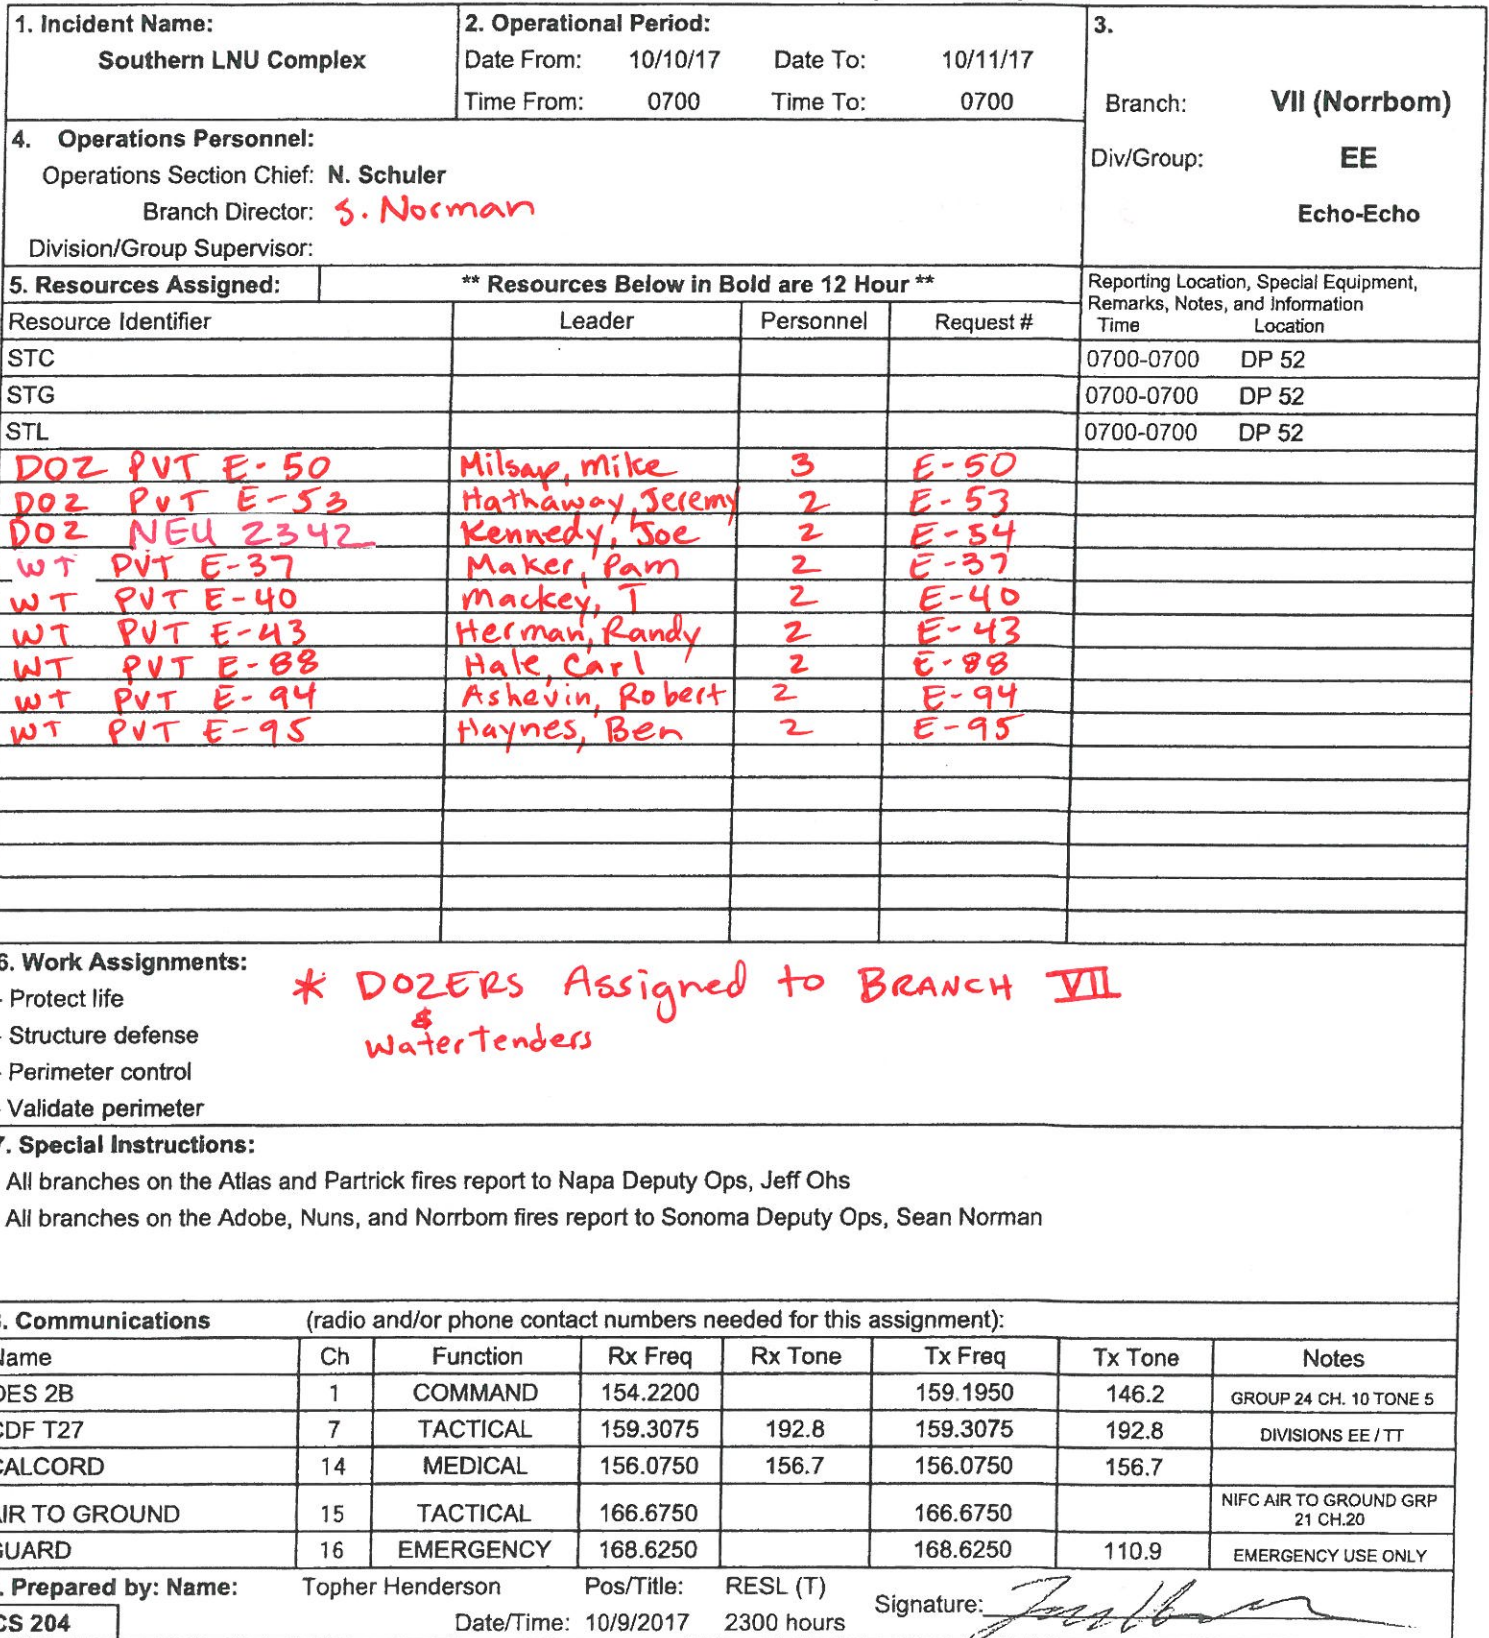 1. Incident Name: 2. Operational Period: 3.
Southern LNU Complex Date From: 10/10/17 Date To: 10/11/17
Time From: 0700 Time To: 0700 Branch: VII (Norrbom)
4. Operations Personnel:
Div/Group: EE
Operations Section Chief: N. Schuler
Branch Director: S. Norman Echo-Echo
Division/Group Supervisor:
5. Resources Assigned: ** Resources Below in Bold are 12 Hour ** Reporting Location, Special Equipment,
Remarks, Notes, and Information
Resource Identifier Leader Personnel Request # Time Location
STC 0700-0700 DP 52
STG 0700-0700 DP 52
STL 0700-0700 DP 52
DOZ PVT E-50 Milsap, Mike 3 E-50
DOZ PVT E-53 Hathaway, Jeremy 2 E-53
DOZ NEU 2342 Kennedy, Joe 2 E-54
WT PVT E-37 Maker, Pam 2 E-37
WT PVT E-40 Mackey, T 2 E-40
WT PVT E-43 Herman, Randy 2 E-43
WT PVT E-88 Hale, Carl 2 E-88
WT PVT E-94 Ashevin, Robert 2 E-94
WT PVT E-95 Haynes, Ben 2 E-95
6. Work Assignments:
* DOZERS Assigned to BRANCH VII
- Protect life
&
- Structure defense
Water Tenders
- Perimeter control
- Validate perimeter
7. Special Instructions:
All branches on the Atlas and Partrick fires report to Napa Deputy Ops, Jeff Ohs
All branches on the Adobe, Nuns, and Norrbom fires report to Sonoma Deputy Ops, Sean Norman
. Communications (radio and/or phone contact numbers needed for this assignment):
Name Ch Function Rx Freq Rx Tone Tx Freq Tx Tone Notes
OES 2B 1 COMMAND 154.2200 159.1950 146.2 GROUP 24 CH. 10 TONE 5
CDF T27 7 TACTICAL 159.3075 192.8 159.3075 192.8 DIVISIONS EE / TT
CALCORD 14 MEDICAL 156.0750 156.7 156.0750 156.7
AIR TO GROUND 15 TACTICAL 166.6750 166.6750 NIFC AIR TO GROUND GRP
21 CH.20
GUARD 16 EMERGENCY 168.6250 168.6250 110.9 EMERGENCY USE ONLY
. Prepared by: Name: Topher Henderson Pos/Title: RESL (T) Signature:
ICS 204 Date/Time: 10/9/2017 2300 hours